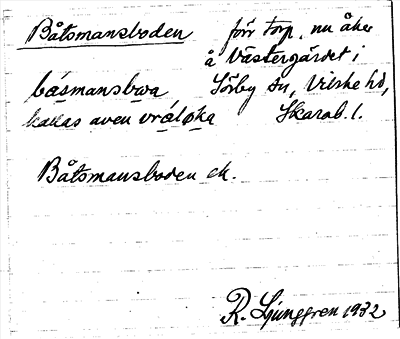 Båtsmansboden förr torp, nu åker
å Västergärdet i
båsmansbωa Sörby sn, Vilske hd,
kallas även vråleka Skarab. l.
Båtsmansboden ck.
R. Ljunggren 1932